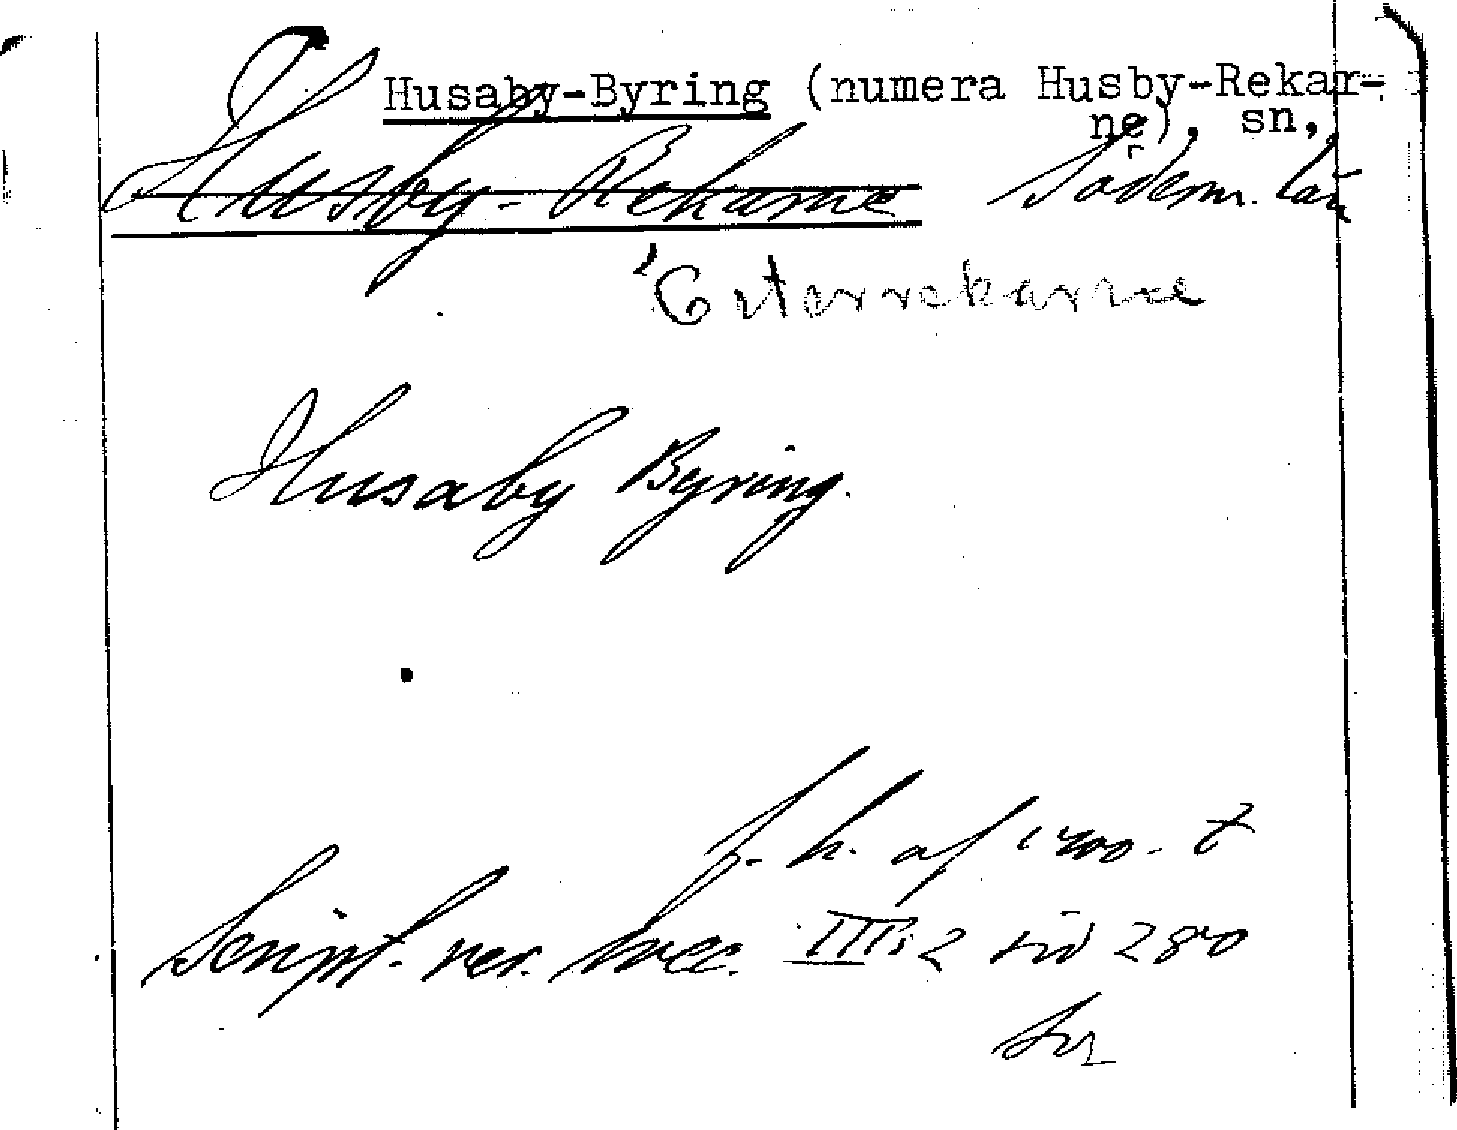 Husaby-Byring (numera Husby-Rekar-
ne), sn,
Husby-Rekarne Söderm. län
Österrekarne
Husaby Byring.
f. h. af 1400-t
Script. rer. svec. III:2 sid 280